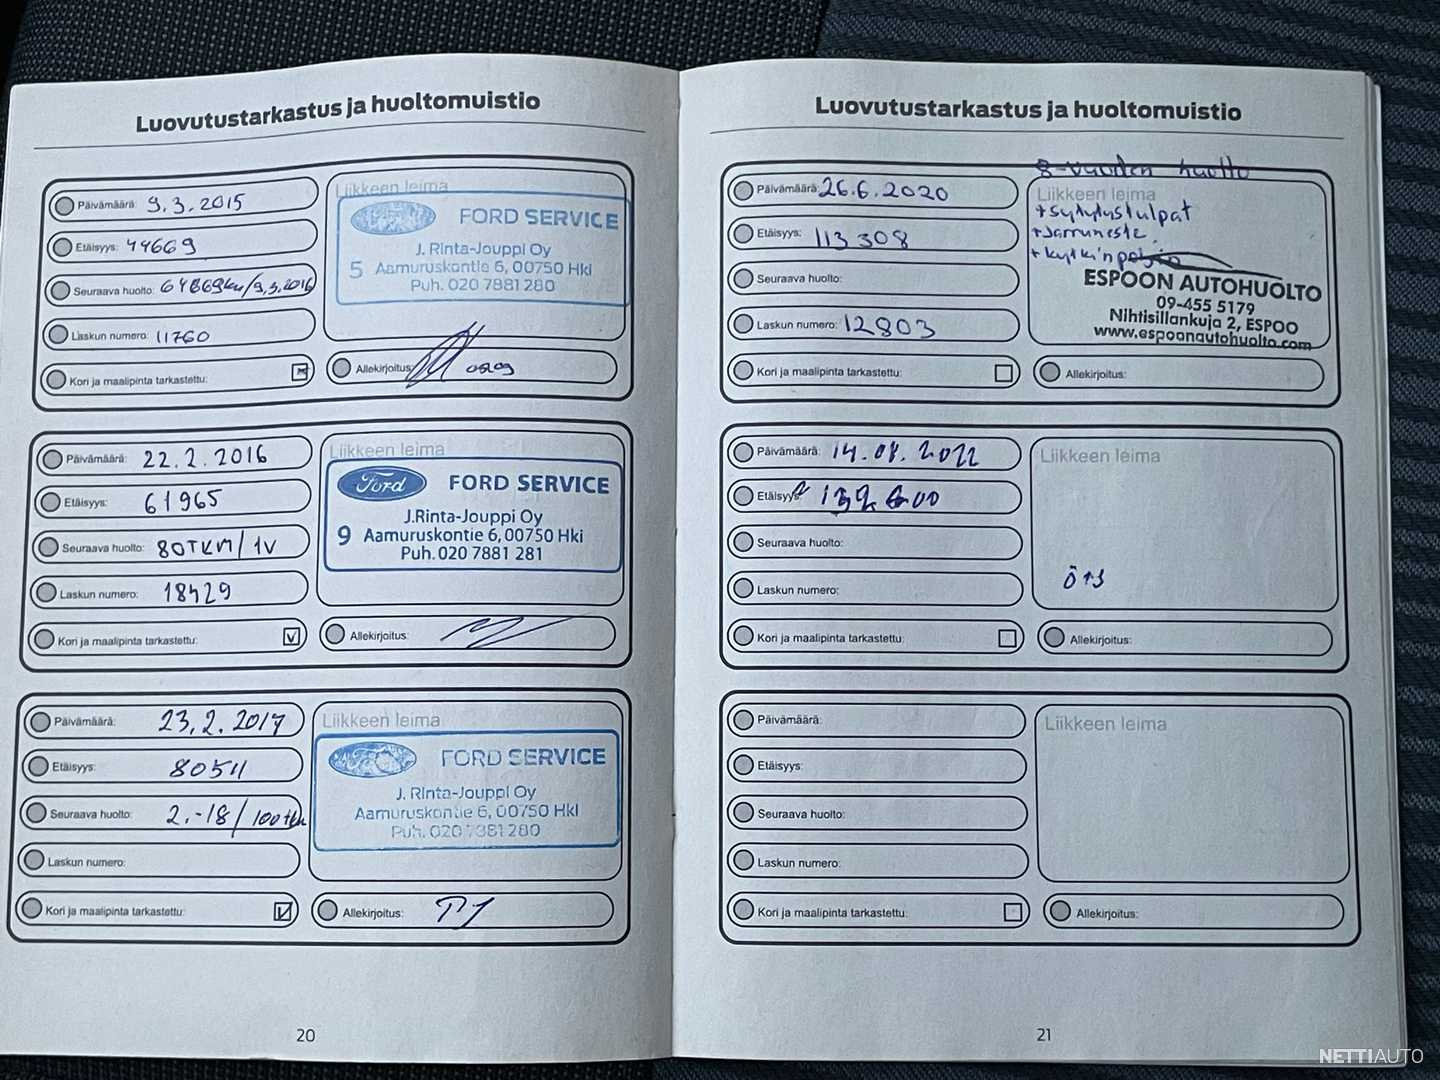 Luovutustarkastus ja huoltomuistio
Päivämäärä: 9.3.2015
Etäisyys: 44669
Seuraava huolto: 64669km/9.3.2016
Laskun numero: 11760
Kori ja maalipinta tarkastettu:
Liikkeen leima
FORD SERVICE
J. Rinta-Jouppi Oy
5 Aamuruskontie 6, 00750 Hki
Puh. 020 7881 280
Allekirjoitus:
Päivämäärä: 22.2.2016
Etäisyys: 61965
Seuraava huolto: 80TKM/1V
Laskun numero: 18429
Kori ja maalipinta tarkastettu: V
Liikkeen leima
Ford FORD SERVICE
J.Rinta-Jouppi Oy
9 Aamuruskontie 6, 00750 Hki
Puh. 020 7881 281
Allekirjoitus:
Päivämäärä: 23.2.2017
Etäisyys: 80511
Seuraava huolto: 2.-18/100tkm
Laskun numero:
Kori ja maalipinta tarkastettu: V
Liikkeen leima
FORD SERVICE
J. Rinta-Jouppi Oy
Aamuruskontie 6, 00750 Hki
Puh. 020 7881 280
Allekirjoitus:
20
Luovutustarkastus ja huoltomuistio
8-vuoden huolto
Päivämäärä: 26.6.2020
Etäisyys: 113308
Seuraava huolto:
Laskun numero: 12803
Kori ja maalipinta tarkastettu:
Liikkeen leima
+sytytystulpat
+Jarruneste
ESPOON AUTOHUOLTO
09-455 5179
Nihtisillankuja 2, ESPOO
www.espoonautohuolto.com
Allekirjoitus:
Päivämäärä: 14.08.2022
Etäisyys:
Seuraava huolto:
Laskun numero:
Kori ja maalipinta tarkastettu:
Liikkeen leima
Allekirjoitus:
Päivämäärä:
Etäisyys:
Seuraava huolto:
Laskun numero:
Kori ja maalipinta tarkastettu:
Liikkeen leima
Allekirjoitus:
21
NETTIAUTO